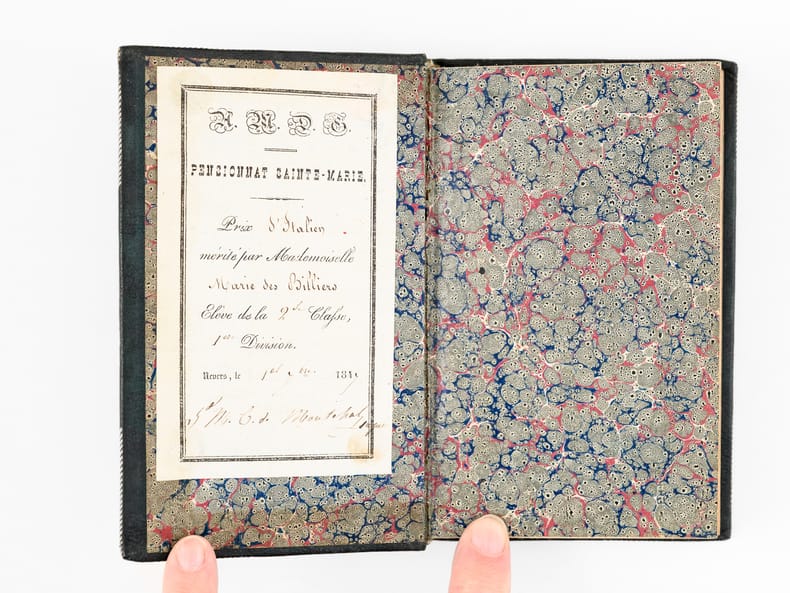 A. M. D. G.
PENSIONNAT SAINTE-MARIE.
Prix d'Italien
mérité par Mademoiselle
Marie des Billiers
Elève de la 2de Classe,
1ere Division.
Nevers, le 1er 184
Sr M. C. de